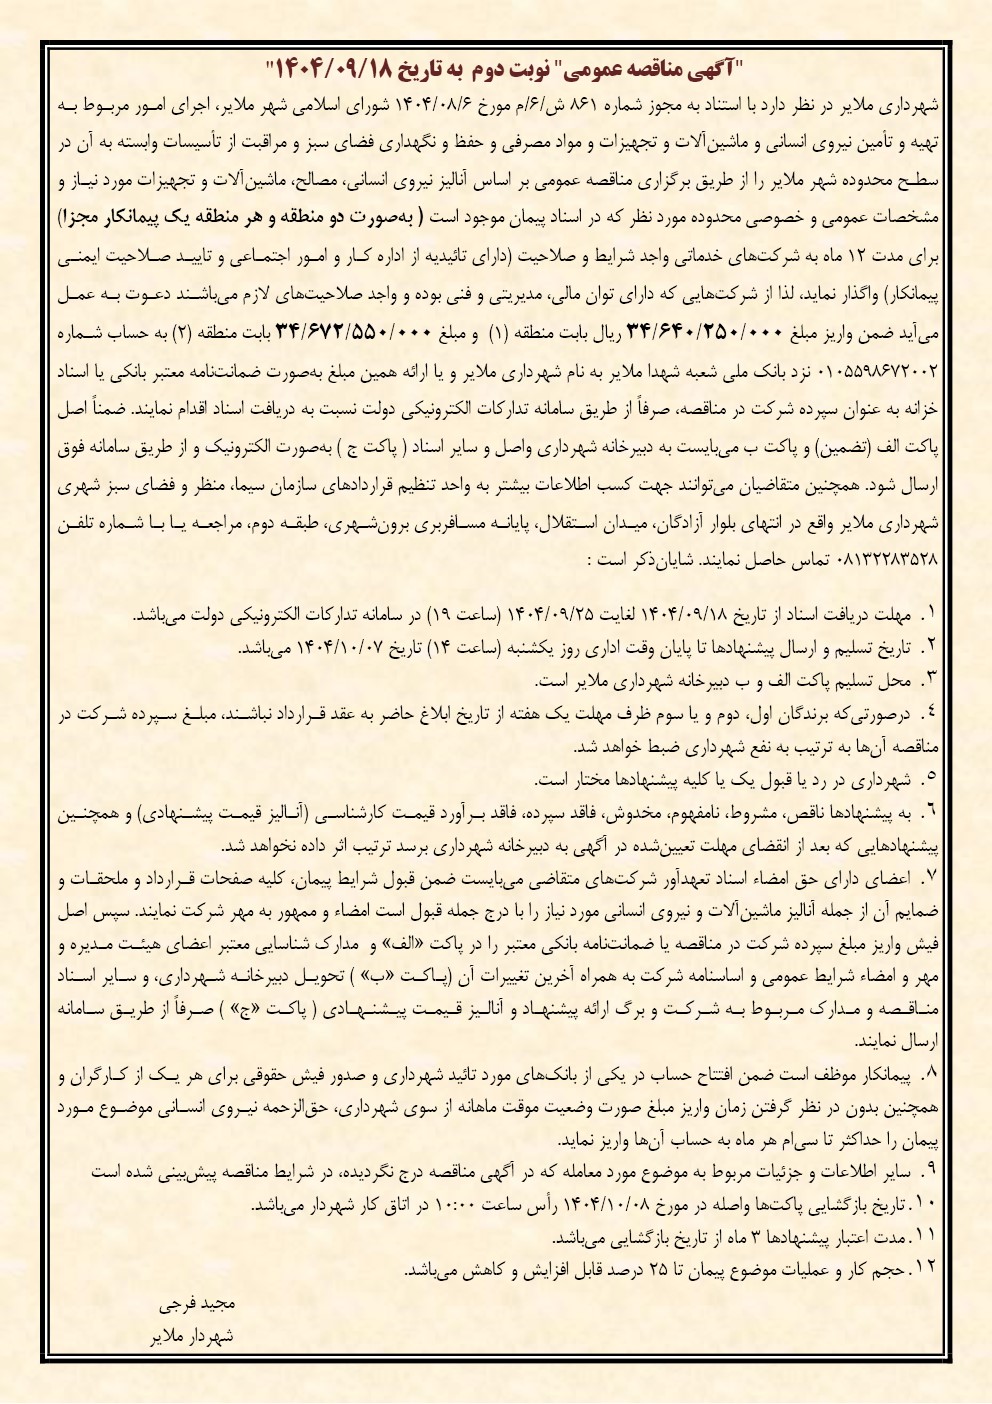 "آگهی مناقصه عمومی" نوبت دوم به تاریخ ۱۴۰۴/۰۹/۱۸"
شهرداری ملایر در نظر دارد با استناد به مجوز شماره ۸۶۱ ش/۶/م مورخ ۱۴۰۴/۰۸/۶ شورای اسلامی شهر ملایر، اجرای امور مربوط به
تهیه و تأمین نیروی انسانی و ماشین‌آلات و تجهیزات و مواد مصرفی و حفظ و نگهداری فضای سبز و مراقبت از تأسیسات وابسته به آن در
سطح محدوده شهر ملایر را از طریق برگزاری مناقصه عمومی بر اساس آنالیز نیروی انسانی، مصالح، ماشین‌آلات و تجهیزات مورد نیاز و
مشخصات عمومی و خصوصی محدوده مورد نظر که در اسناد پیمان موجود است ( به‌صورت دو منطقه و هر منطقه یک پیمانکار مجزا)
برای مدت ۱۲ ماه به شرکت‌های خدماتی واجد شرایط و صلاحیت (دارای تائیدیه از اداره کار و امور اجتماعی و تایید صلاحیت ایمنی
پیمانکار) واگذار نماید، لذا از شرکت‌هایی که دارای توان مالی، مدیریتی و فنی بوده و واجد صلاحیت‌های لازم می‌باشند دعوت به عمل
می‌آید ضمن واریز مبلغ ۳۴/۶۴۰/۲۵۰/۰۰۰ ریال بابت منطقه (۱) و مبلغ ۳۴/۶۷۲/۵۵۰/۰۰۰ بابت منطقه (۲) به حساب شماره
۰۱۰۵۵۹۸۶۷۲۰۰۲ نزد بانک ملی شعبه شهدا ملایر به نام شهرداری ملایر و یا ارائه همین مبلغ به‌صورت ضمانت‌نامه معتبر بانکی یا اسناد
خزانه به عنوان سپرده شرکت در مناقصه، صرفاً از طریق سامانه تدارکات الکترونیکی دولت نسبت به دریافت اسناد اقدام نمایند. ضمناً اصل
پاکت الف (تضمین) و پاکت ب می‌بایست به دبیرخانه شهرداری واصل و سایر اسناد ( پاکت ج ) به‌صورت الکترونیک و از طریق سامانه فوق
ارسال شود. همچنین متقاضیان می‌توانند جهت کسب اطلاعات بیشتر به واحد تنظیم قراردادهای سازمان سیما، منظر و فضای سبز شهری
شهرداری ملایر واقع در انتهای بلوار آزادگان، میدان استقلال، پایانه مسافربری برون‌شهری، طبقه دوم، مراجعه یا با شماره تلفن
۰۸۱۳۲۲۸۳۵۲۸ تماس حاصل نمایند. شایان‌ذکر است :
۱. مهلت دریافت اسناد از تاریخ ۱۴۰۴/۰۹/۱۸ لغایت ۱۴۰۴/۰۹/۲۵ (ساعت ۱۹) در سامانه تدارکات الکترونیکی دولت می‌باشد.
۲. تاریخ تسلیم و ارسال پیشنهادها تا پایان وقت اداری روز یکشنبه (ساعت ۱۴) تاریخ ۱۴۰۴/۱۰/۰۷ می‌باشد.
۳. محل تسلیم پاکت الف و ب دبیرخانه شهرداری ملایر است.
٤. درصورتی‌که برندگان اول، دوم و یا سوم ظرف مهلت یک هفته از تاریخ ابلاغ حاضر به عقد قرارداد نباشند، مبلغ سپرده شرکت در
مناقصه آن‌ها به ترتیب به نفع شهرداری ضبط خواهد شد.
٥. شهرداری در رد یا قبول یک یا کلیه پیشنهادها مختار است.
٦. به پیشنهادها ناقص، مشروط، نامفهوم، مخدوش، فاقد سپرده، فاقد برآورد قیمت کارشناسی (آنالیز قیمت پیشنهادی) و همچنین
پیشنهادهایی که بعد از انقضای مهلت تعیین‌شده در آگهی به دبیرخانه شهرداری برسد ترتیب اثر داده نخواهد شد.
۷. اعضای دارای حق امضاء اسناد تعهدآور شرکت‌های متقاضی می‌بایست ضمن قبول شرایط پیمان، کلیه صفحات قرارداد و ملحقات و
ضمایم آن از جمله آنالیز ماشین‌آلات و نیروی انسانی مورد نیاز را با درج جمله قبول است امضاء و ممهور به مهر شرکت نمایند. سپس اصل
فیش واریز مبلغ سپرده شرکت در مناقصه یا ضمانت‌نامه بانکی معتبر را در پاکت «الف» و مدارک شناسایی معتبر اعضای هیئت مدیره و
مهر و امضاء شرایط عمومی و اساسنامه شرکت به همراه آخرین تغییرات آن (پاکت «ب» ) تحویل دبیرخانه شهرداری، و سایر اسناد
مناقصه و مدارک مربوط به شرکت و برگ ارائه پیشنهاد و آنالیز قیمت پیشنهادی ( پاکت «ج» ) صرفاً از طریق سامانه
ارسال نمایند.
۸. پیمانکار موظف است ضمن افتتاح حساب در یکی از بانک‌های مورد تائید شهرداری و صدور فیش حقوقی برای هر یک از کارگران و
همچنین بدون در نظر گرفتن زمان واریز مبلغ صورت وضعیت موقت ماهانه از سوی شهرداری، حق‌الزحمه نیروی انسانی موضوع مورد
پیمان را حداکثر تا سی‌ام هر ماه به حساب آن‌ها واریز نماید.
۹. سایر اطلاعات و جزئیات مربوط به موضوع مورد معامله که در آگهی مناقصه درج نگردیده، در شرایط مناقصه پیش‌بینی شده است
۱۰. تاریخ بازگشایی پاکت‌ها واصله در مورخ ۱۴۰۴/۱۰/۰۸ رأس ساعت ۱۰:۰۰ در اتاق کار شهردار می‌باشد.
۱۱. مدت اعتبار پیشنهادها ۳ ماه از تاریخ بازگشایی می‌باشد.
۱۲. حجم کار و عملیات موضوع پیمان تا ۲۵ درصد قابل افزایش و کاهش می‌باشد.
مجید فرجی
شهردار ملایر